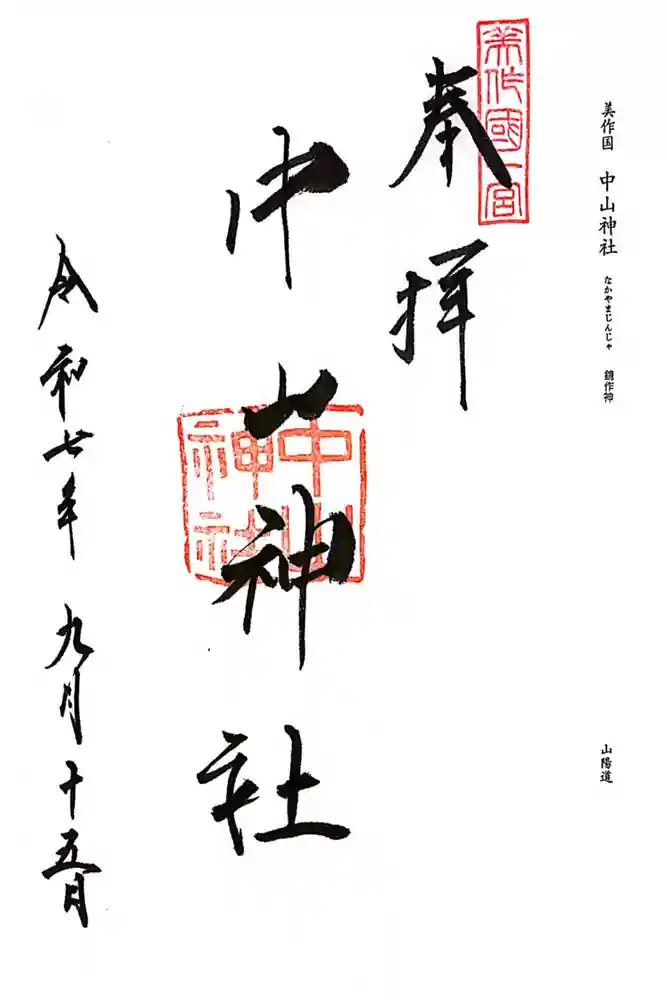 美作国 中山神社 なかやまじんじゃ 鏡作神
山陽道
美作國一宮
奉拝
中山神社
中山神社
令和七年 九月十五日